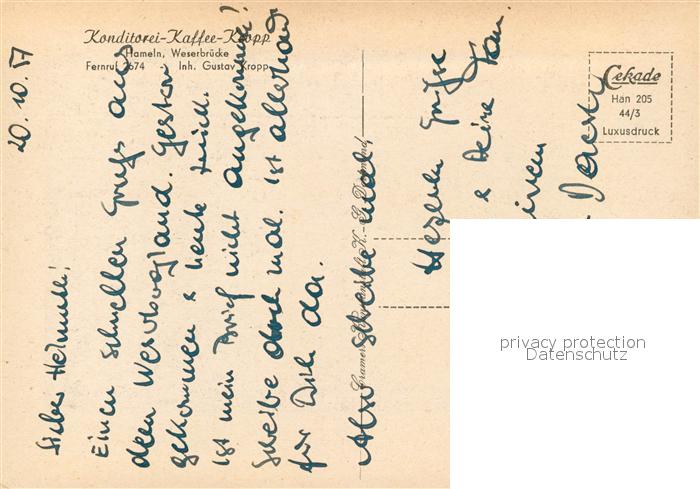 Konditorei-Kaffee-Kropp
Hameln, Weserbrücke
Fernruf 2674 Inh. Gustav Kropp
Cekade
Han 205
44/3
Luxusdruck
20.10.57
Lieber Helmuth!
Einen schnellen Gruß aus
dem Weserbergland. Gestern
gekommen & heute zurück.
Ist mein Brief nicht angekommen?
Schreibe doch mal. Ist allerhand
für Dich da.
Also schreibe mal
Herzliche Grüße
& Deine
Cramers Kunstanstalt K.-G. Dortmund
privacy protection
Datenschutz